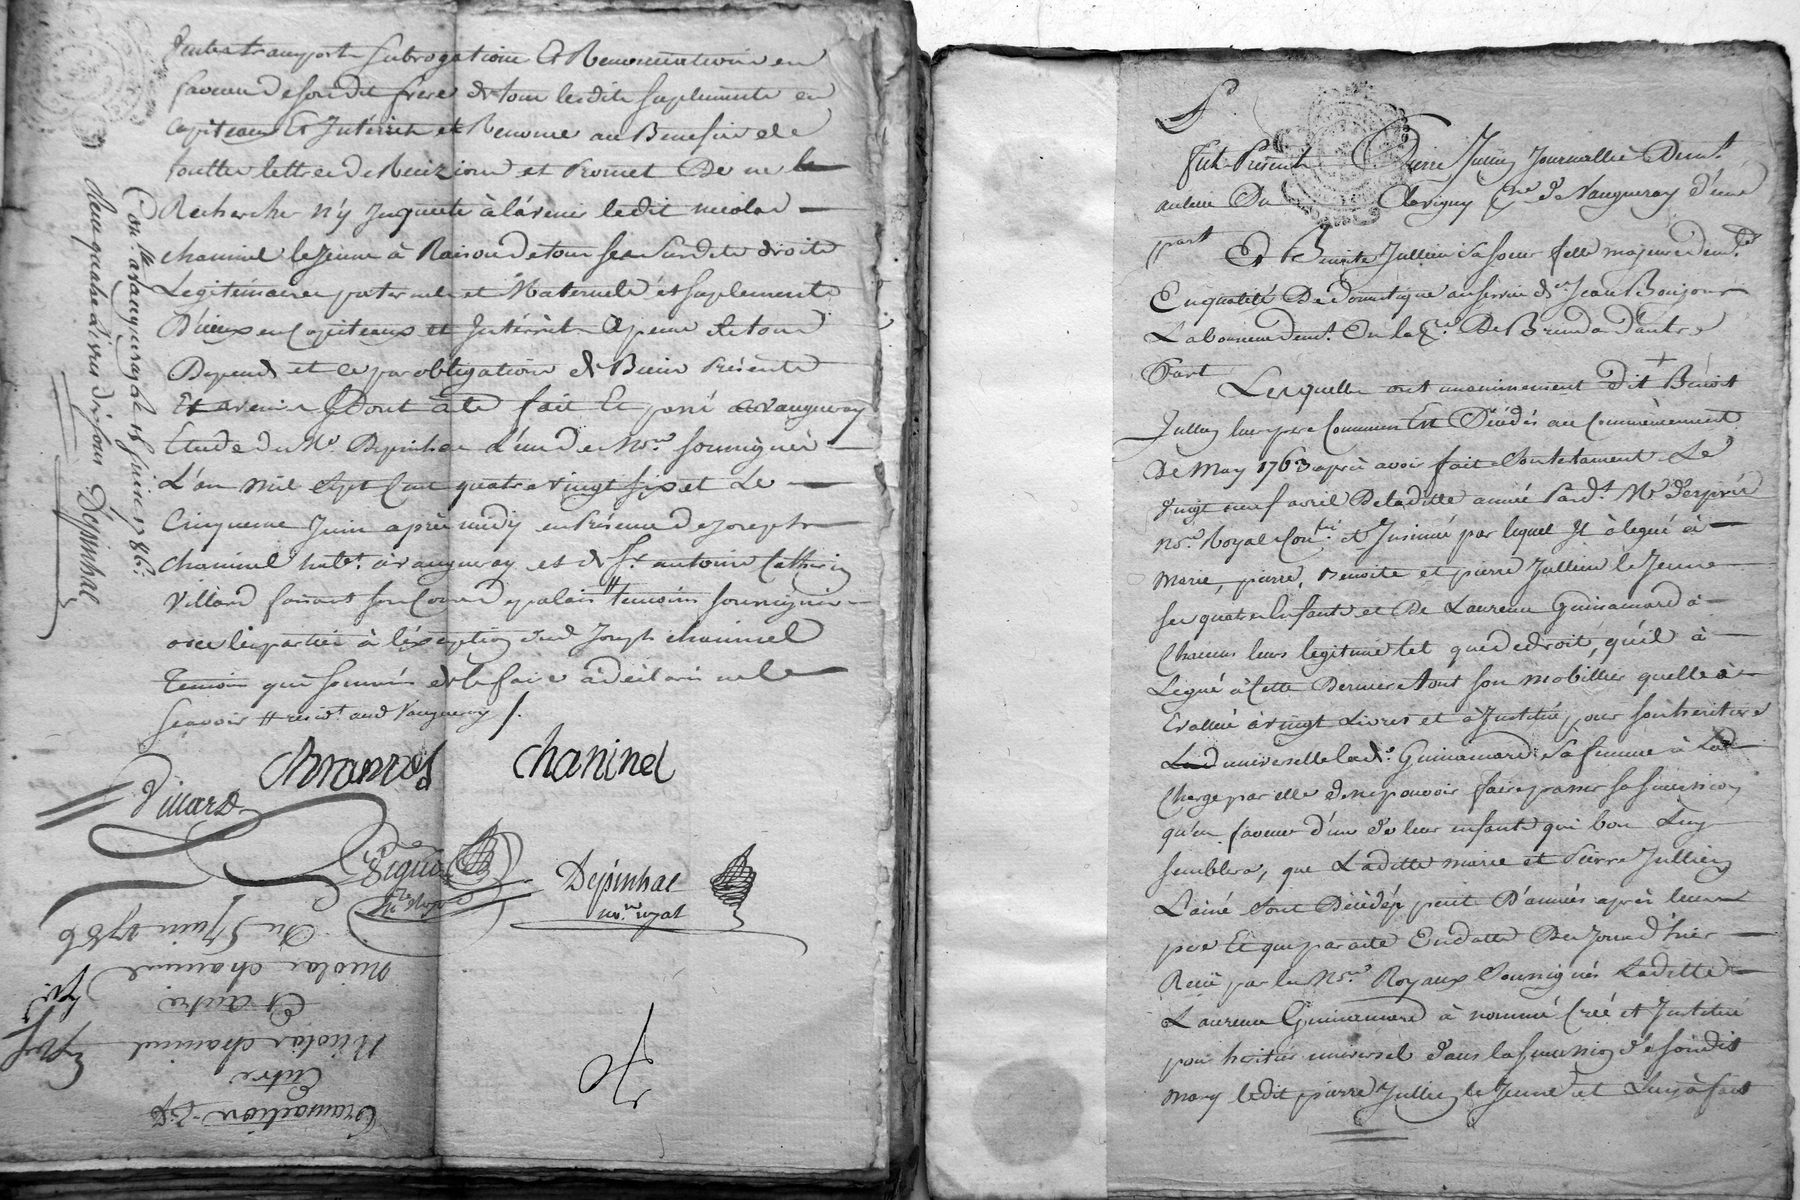 transport subrogation Et Renonciation en
faveur de son dit frere de tous lesdits suplements en
Capiteaux Et Intérêts et Renonce au Benefice de
touttes lettres de Recizion et Promet De ne le
Rechercher n'y Inquieter à l'avenir ledit nicolas
chaninel le Jeune à Raison de tous ses susdits droits
Legitimaires paternels et Maternels et suplements
D'iceux en Capiteaux et Intérrêts à peine de tous
Depends et ce par obligation de Biens Présents
Et avenir Dont acte fait Et passé a vaugneray
Etude de Me. Depinhac L'un des Nres. soussignés
L'an mil sept Cent quatre vingt six et Le
Cinquieme Juin après midy en Présence de Joseph
Chaninel habt. à vaugneray et de Sr. antoine Catherin
Villard faisant son Cours de palais # temoins soussignés
avec les parties à l'éxception dud Joseph chaninel
Temoin qui sommés de le faire à déclaré ne le
sçavoir # resid.t aud Vaugneray /.
chaninel
Villard
Depinhac
no.re royal
Con.lé a vaugneray le 15 juin 1786.
Reçu quatre Livres dix sous Depinhac
Du 5 Juin 1786
Transaction
Entre
Nicolas chaninel
Et autre
Nicolas chaninel
Fut Présent Pierre Jullien Journallier Demt.
au lieu Du Clavigny p.sse de Vaugneray d'une
part
Et Benoite Jullien sa soeur fille majeure demt.
En qualité De domestique au service de Sr Jean Boujour
Laboureur demt. En la p.sse De Brinda d'autre
Part
Lesquelles ont unanimement dit + Benoit
Jullien leur pere Commun Est Décédés au Commencement
De May 1763 après avoir fait son testament Le
vingt neuf avril De la ditte année Pard.t Me Desprès
no.re Royal Con.lé et Insinué par lequel Il à legué à
Marie, pierre, Benoite et pierre Jullien le Jeune
ses quatre Enfants et De Laurence Guinamard à
Chacuns leurs legitime tel que de droit, qu'il à
Légué à Cette Derniere tout son mobillier quelle à
Evalluée à vingt Livres et à Institué pour son heritiere
universelle lad.e Guinamard sa femme à la
Charge par elle de ne pouvoir faire passer sa succession
qu'en faveur d'un de leur enfants qui bon Luy
semblera, que Laditte marie et Pierre Jullien
L'ainé sont Décédés peu D'années après leur
pere Et que par acte En datte Du Jour d'hier
Recu par les N.res Royaux Soussignés Laditte
Laurence Guinamard à nommé Créé et Institué
pour heritier universel dans la succession de son dit
mary ledit pierre Jullien le Jeune et Luy à fait